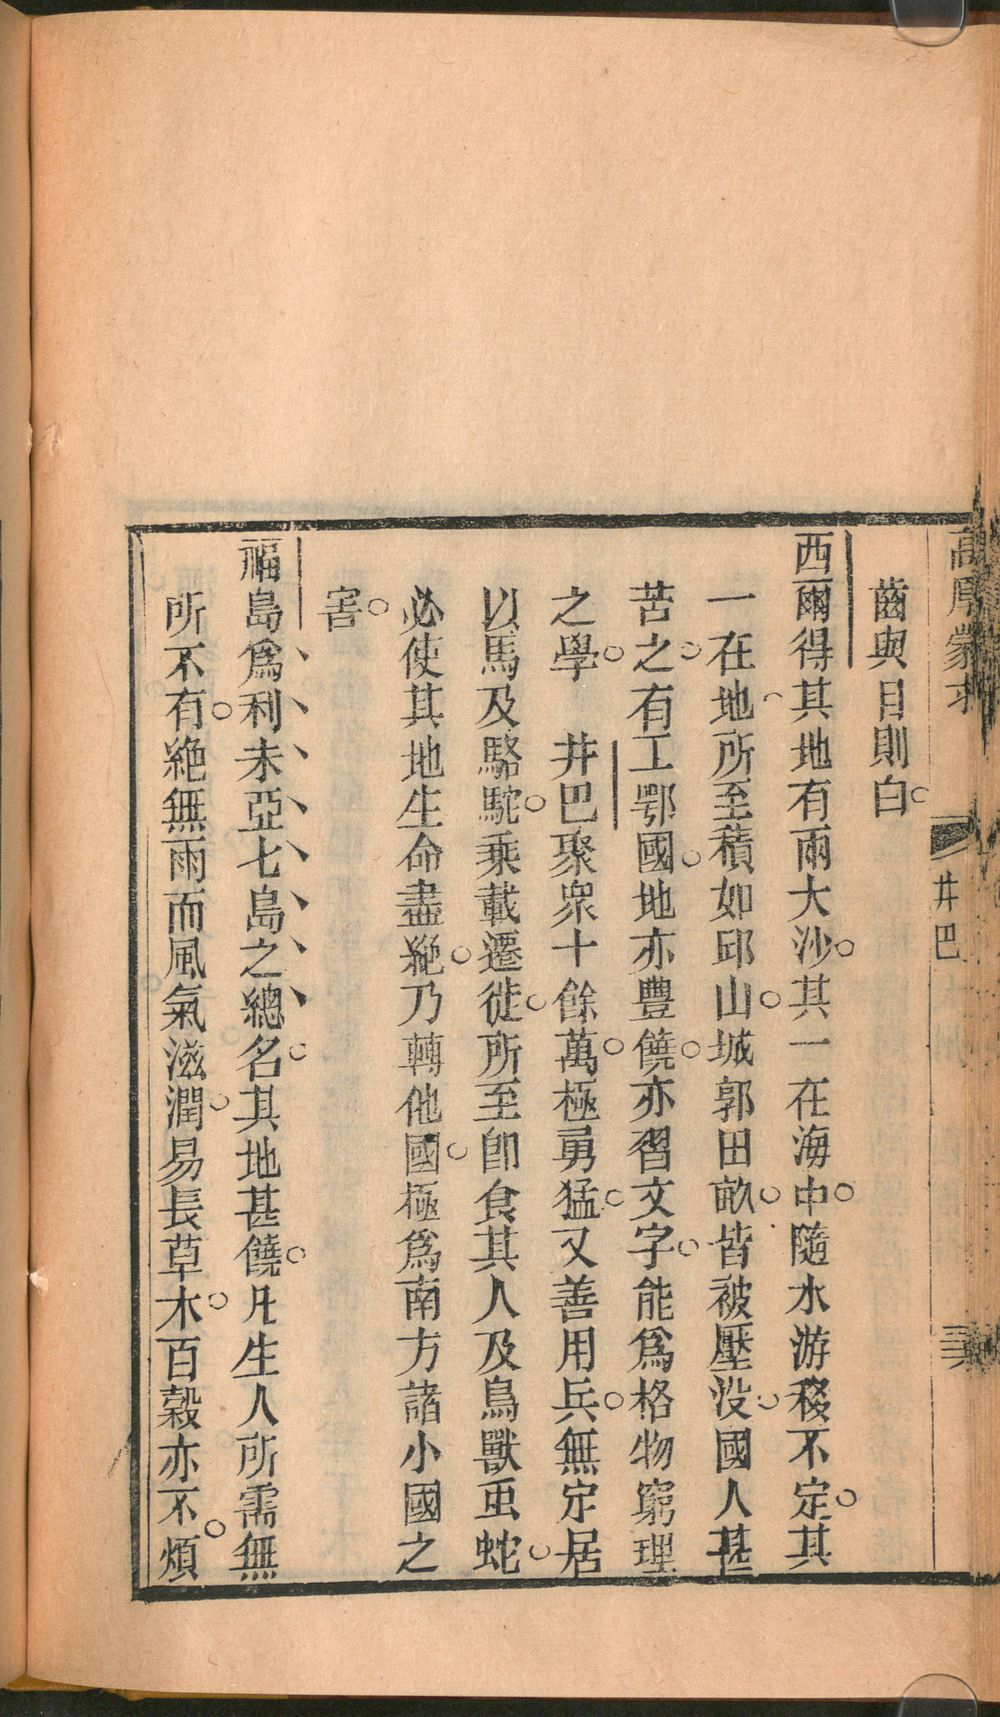 高厚蒙求
井巴
齒與目則白
西爾得其地有兩大沙其一在海中隨水游移不定其
一在地所至積如邱山城郭田畝皆被壓没國人甚
苦之有工鄂國地亦豐饒亦習文字能爲格物窮理
之學　井巴聚衆十餘萬極勇猛又善用兵無定居
以馬及駱駝乘載遷徙所至卽食其人及鳥獸虫蛇
必使其地生命盡絕乃轉他國極爲南方諸小國之
害
福島爲利未亞七島之總名其地甚饒凡生人所需無
所不有絶無雨而風氣滋潤易長草木百穀亦不煩